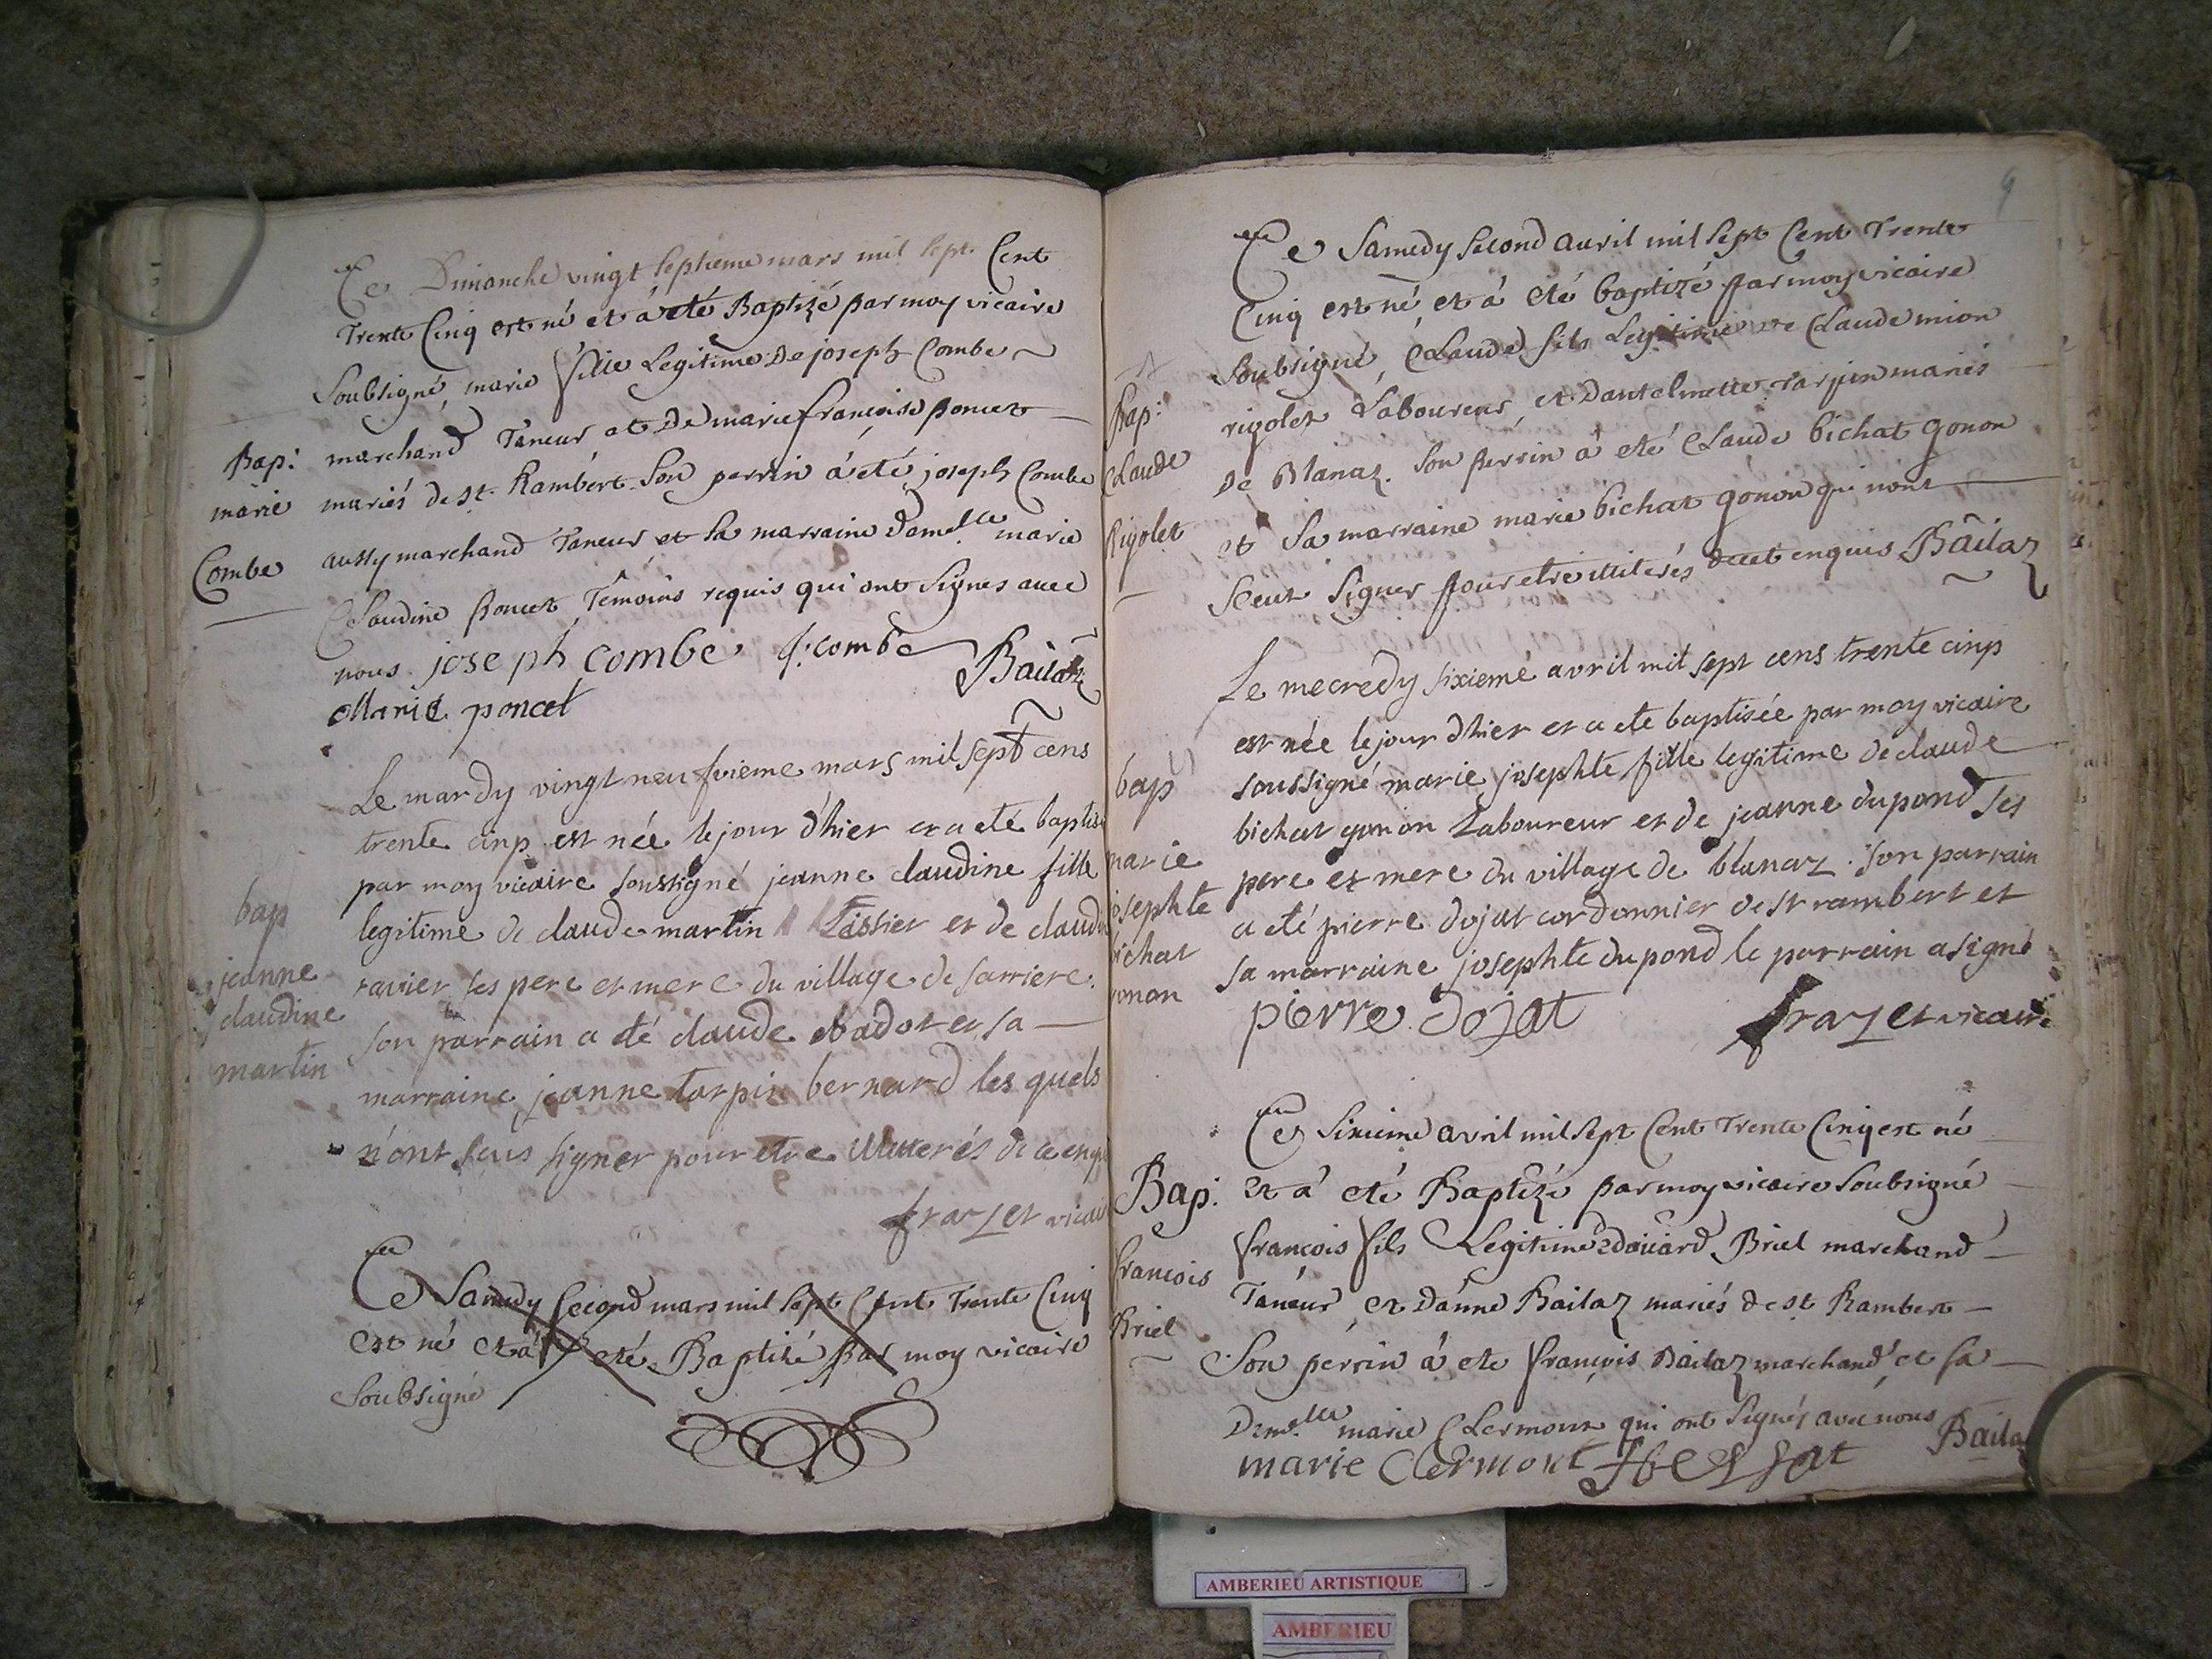 Ce Dimanche vingt septieme mars mil sept Cent
Trente Cinq est né et á eté Baptizé par moy vicaire
Soubsigné, marie fille Legitime De joseph Combe
marchand Taneur et De marie françoise poncet
mariés de st. Rambert. Son perrin á eté joseph Combe
aussy marchand Taneur et sa marraine dam.lle marie
Claudine poncet Témoins requis qui ont signes avec
nous. joseph combe. f: combe Bailaz
Marie poncet
Bap:
marie
Combe
Le mardy vingt neufvieme mars mil sept cens
trente cinp est née le jour d'hier et a eté baptisé
par moy vicaire soussigné jeanne claudine fille
legitime de claude martin Tissier et de claud
ravier ses pere et mere du village de sarriere.
son parrain a eté claude badot et sa
marraine jeanne tarpin bernard les quels
n'ont seus signer pour etre illiterés de ce enqu
frazet vicair
bap
jeanne
claudine
martin
Ce Samedy second mars mil sept Cent Trente Cinq
est né et á eté Baptizé par moy vicaire
Soubsigné
9
Ce Samedy second avril mil sept Cent Trente
Cinq est né, et á eté baptizé par moy vicaire
Soubsigné, Claude fils Legitime de Claude mion
rigolet Laboureur, et Dantelmette Tarpin mariés
De Blanaz. Son perrin á eté Claude bichat gonon
et Sa marraine marie bichat gonon qui n'ont
sceut signer pour etre illiterés de cet enquis Bailaz
Bap:
Claude
Rigolet
Le mecredy sixieme avril mil sept cens trente cinp
est née le jour d'hier et a eté baptisée par moy vicaire
soussigné marie josephte fille legitime de claude
bichat gonon Laboureur et de jeanne dupond ses
pere et mere du village de blanaz. son parrain
a eté pierre dojat cordonnier de st rambert et
sa marraine josephte dupond le parrain a signé
pierre dojat frazet vicaire
bap
marie
josephte
bichat
gonon
Ce Sixieme avril mil sept Cent Trente Cinq est né
et á eté Baptizé par moy vicaire Soubsigné
françois fils Legitime Edoüard Briel marchand
Taneur, et Danne Bailaz mariés de st Rambert
Son perrin á ete françois Bailaz marchand et sa
Dem.lle marie Clermont qui ont signés avec nous Baila
marie Clermont
Bap:
françois
Briel
AMBERIEU ARTISTIQUE
AMBERIEU